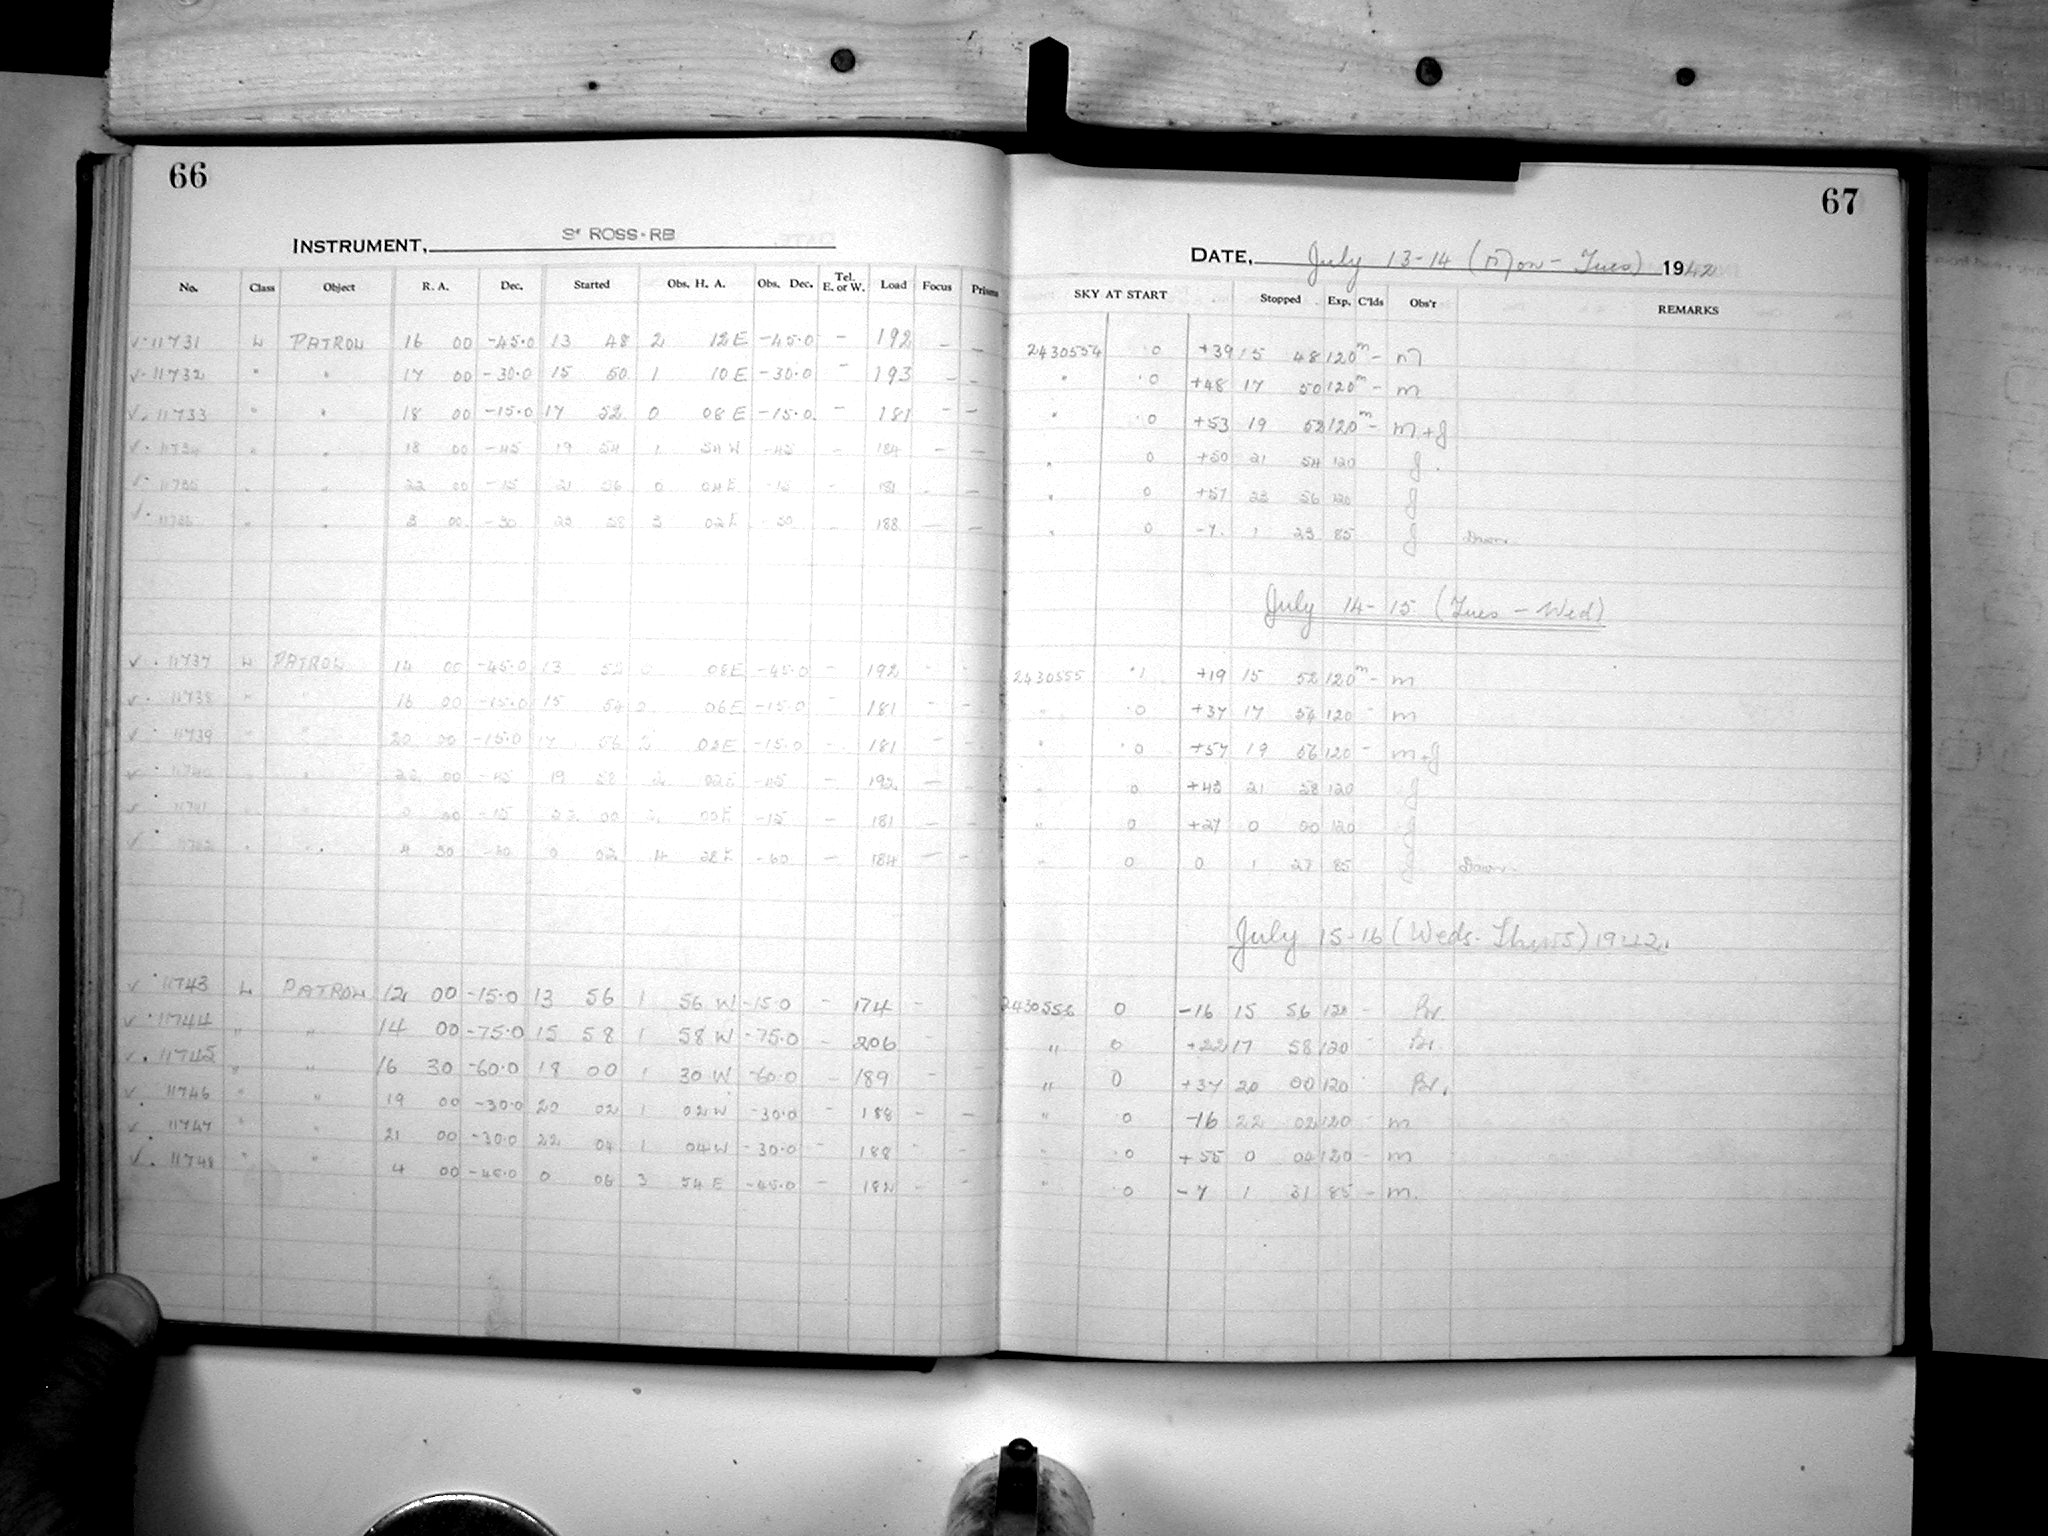 66
INSTRUMENT, 3" ROSS-RB
No. Class Object R. A. Dec. Started Obs. H. A. Obs. Dec. Tel. E. or W. Load Focus Prisms
✓ · 11731 L PATROL 16 00 -45.0 13 48 2 12 E -45.0 - 192 - -
✓ · 11732 " " 17 00 -30.0 15 50 1 10 E -30.0 - 193 - -
✓ · 11733 " " 18 00 -15.0 17 52 0 08 E -15.0 - 181 - -
✓ · 11734 " " 18 00 -45 19 54 1 54 W -45 - 184 - -
✓ · 11735 " " 22 00 -15 21 56 0 04 E -15 - 181 - -
✓ · 11736 " " 3 00 -30 23 58 3 02 E -30 - 188 - -
✓ · 11737 L PATROL 14 00 -45.0 13 52 0 08 E -45.0 - 192 - -
✓ · 11738 " " 16 00 -15.0 15 54 06 E -15.0 - 181 - -
✓ · 11739 " " 20 00 -15.0 17 56 02 E -15.0 - 181 - -
✓ · 11740 " " 22 00 -45 19 58 2 02 E -45 - 192 - -
✓ · 11741 " " 00 -15 22 00 2 00 E -15 - 181 - -
✓ · 11742 " " 4 30 -60 0 02 4 28 E -60 - 184 - -
✓ · 11743 L PATROL 12 00 -15.0 13 56 1 56 W -15.0 - 174 -
✓ · 11744 " " 14 00 -75.0 15 58 1 58 W -75.0 - 206 -
✓ · 11745 " " 16 30 -60.0 18 00 1 30 W -60.0 - 189 - -
✓ · 11746 " " 19 00 -30.0 20 02 1 02 W -30.0 - 188 - -
✓ · 11747 " " 21 00 -30.0 22 04 1 04 W -30.0 - 188 - -
✓ · 11748 " " 4 00 -45.0 0 06 3 54 E -45.0 - 182 - -
67
DATE, July 13-14 (Mon - Tues) 1942
SKY AT START Stopped Exp. C'lds Obs'r REMARKS
2430554 ·0 +39 15 48 120m - m
" ·0 +48 17 50 120m - m
" ·0 +53 19 52 120m - m+J
" 0 +50 21 54 120 J.
" 0 +57 23 56 120 J
" 0 -7. 1 23 85 J Dawn
July 14-15 (Tues - Wed)
2430555 ·1 +19 15 52 120m - m
" ·0 +37 17 54 120 - m
" ·0 +57 19 56 120 - m+J
" 0 +43 21 58 120 J
" 0 +27 0 00 120 J
" 0 0 1 27 85 J Dawn
July 15-16 (Weds - Thurs) 1942.
2430556 0 -16 15 56 120 - Br.
" 0 +22 17 58 120 - Br.
" 0 +37 20 00 120 Br.
" ·0 -16 22 02 120 m
" ·0 +55 0 04 120 - m
" ·0 -7 1 31 85 - m.